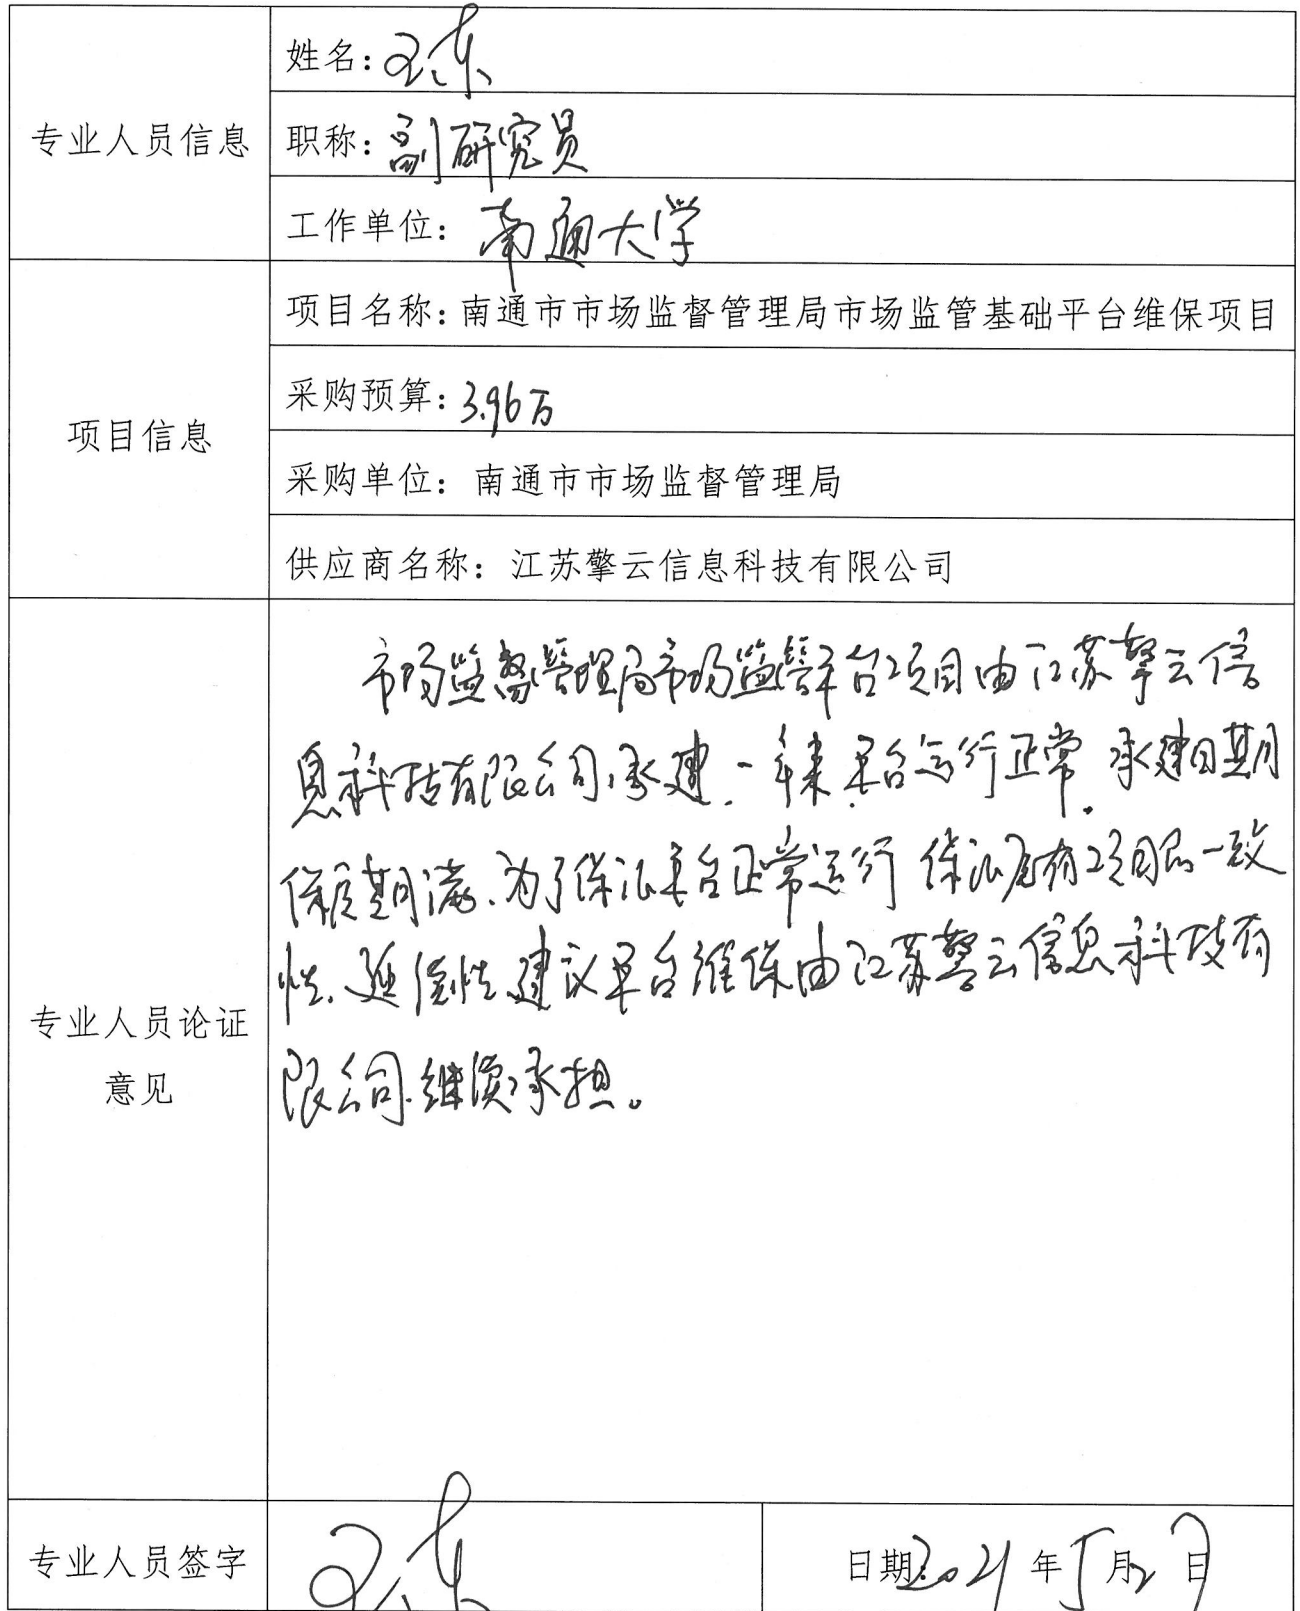 专业人员信息
姓名：王东
职称：副研究员
工作单位：南通大学
项目信息
项目名称：南通市市场监督管理局市场监管基础平台维保项目
采购预算：3.96万
采购单位：南通市市场监督管理局
供应商名称：江苏擎云信息科技有限公司
专业人员论证
意见
市场监督管理局市场监管平台项目由江苏擎云信
息科技有限公司承建.一年来平台运行正常.承建日期
保质期满、为了保证平台正常运行 保证原有项目的一致
性、延续性、建议平台维保由江苏擎云信息科技有
限公司继续承担。
专业人员签字
王东
日期 2021 年 5 月 27 日